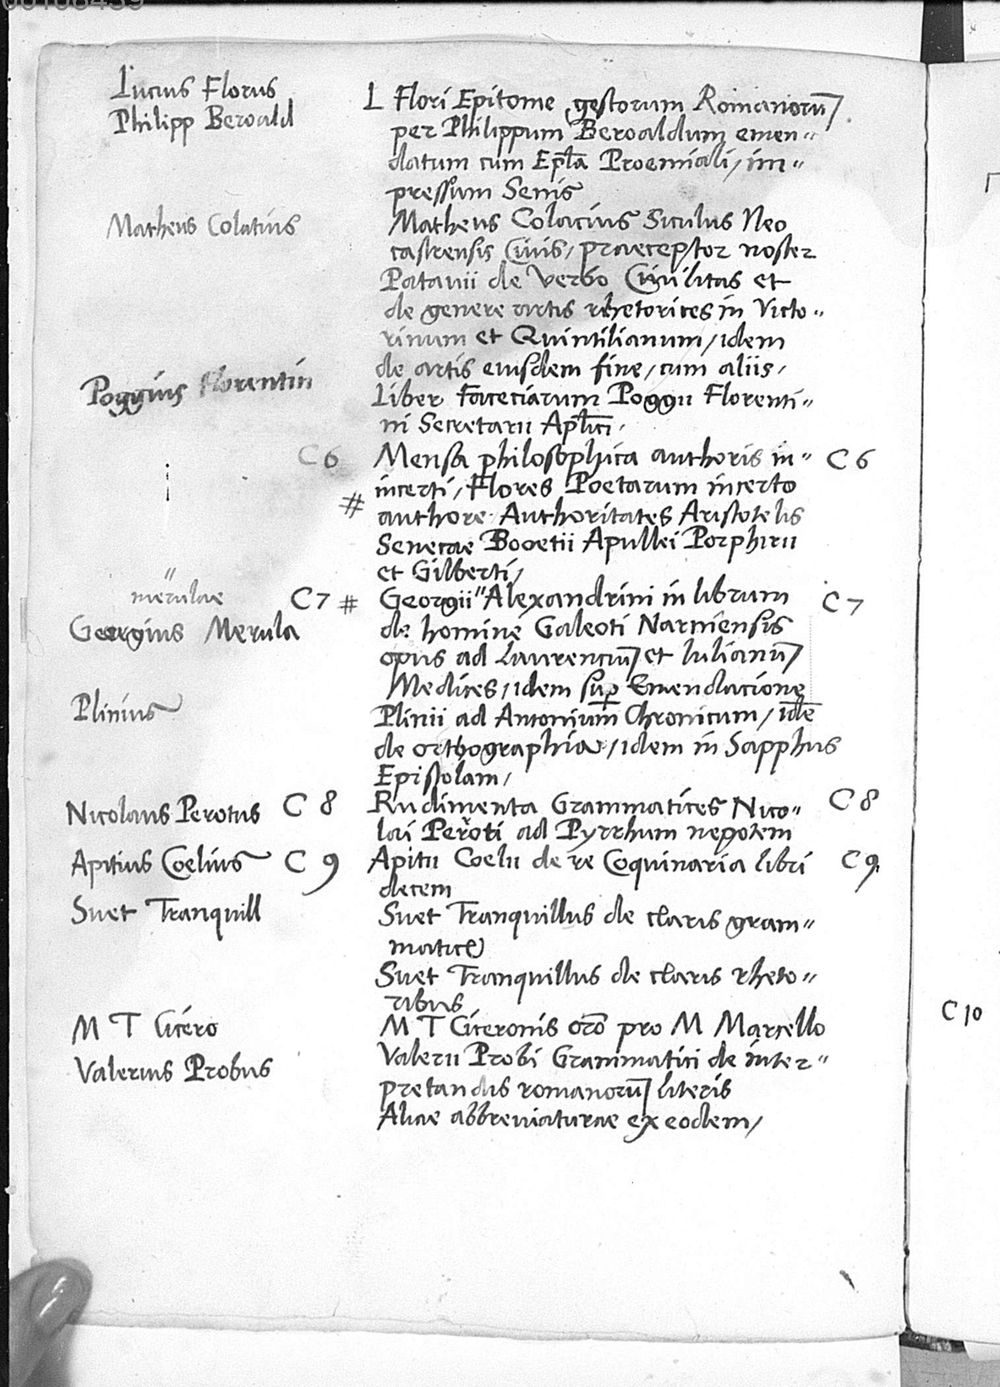 00108439
Lucius Florus
Philipp Beroald
L Flori Epitome gestorum Romanorū
per Philippum Beroaldum emen„
datum cum Epl̄a Proemiali, im„
pressum Senis
Matheus Colatius
Matheus Colacius Siculus Neo
castrensis Civis, praeceptor noster
Patavii de verbo Civilitas et
de genere artis rhetorices in Victo„
rinum et Quintilianum, idem
de artis eiusdem fine, cum aliis,
Poggius Florentin
Liber faceciarum Poggii Florenti„
ni Secretarii Apl̄ici,
C 6
Mensa philosophica authoris in„
C 6
incerti, Flores Poetarum incerto
#
authore Authoritates Aristotelis
Senecae Booetii Apullei Porphirii
et Gilberti,
merulae
Georgius Merula
C 7 #
Georgii" Alexandrini in librum
C 7
de homine Galeoti Narniensis
opus ad Laurenciū et Iulianū
Medices, idem sup̱ Emendacione
Plinius
Plinii ad Antonium̄ Chronicum, idē
de orthographia, idem in Sapphus
Epistolam,
Nicolaus Perotus C 8
Rudimenta Grammatices Nico„
C 8
lai Peroti ad Pyrrhum nepotem
Apitius Coelius C 9
Apitii Coelii de re Coquinaria libri
C 9
decem
Suet Tranquill
Suet Tranquillus de claris gram„
maticę
Suet Tranquillus de claris rheto„
ribus
M T Cicero
M T Ciceronis orō pro M Marcello
Valerius Probus
Valerii Probi Grammatici de inter„
pretandis romanorū literis
Aliae abbreviaturae ex eodem,
C 10